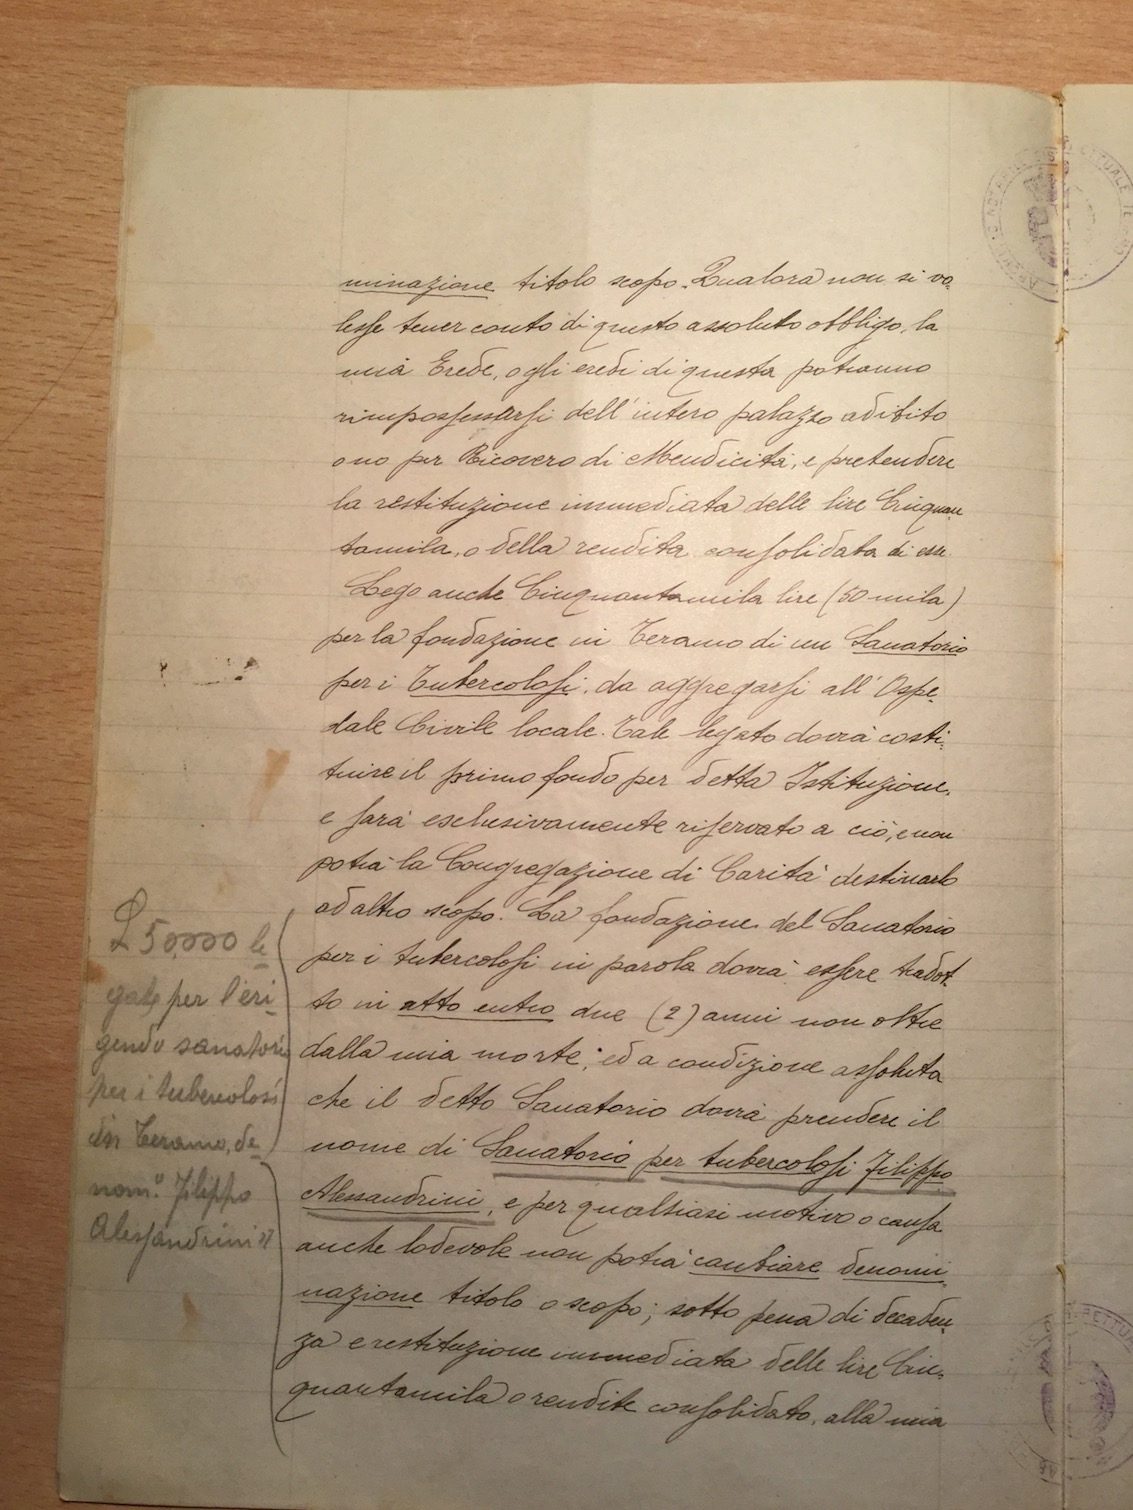 minazione titolo scopo. Qualora non si vo-
lesse tener conto di questo assoluto obbligo, la
mia Erede, o gli eredi di questa potranno
rimpossessarsi dell'intero palazzo adibito
o no per Ricovero di Mendicità, e pretendere
la restituzione immediata delle lire Cinquan-
tamila, o della rendita consolidata di esse.
Lego anche Cinquantamila lire (50 mila)
per la fondazione in Teramo di un Sanatorio
per i Tubercolosi, da aggregarsi all'Ospe-
dale Civile locale. Tale legato dovrà costi-
tuire il primo fondo per detta Istituzione,
e sarà esclusivamente riservato a ciò, e non
potrà la Congregazione di Carità destinarlo
ad altro scopo. La fondazione del Sanatorio
per i tubercolosi in parola dovrà essere tradot-
to in atto entro due (2) anni non oltre
dalla mia morte, ed a condizione assoluta
che il detto Sanatorio dovrà prendere il
nome di Sanatorio per tubercolosi Filippo
Alessandrini, e per qualsiasi motivo o causa
anche lodevole non potrà cambiare denomi-
nazione titolo o scopo; sotto pena di decaden-
za e restituzione immediata delle lire Cin-
quantamila o rendite consolidato, alla mia
£ 50,000 le-
gate per l'eri-
gendo sanatorio
per i tubercolosi
in Teramo, de-
nom.º Filippo
Alessandrini"